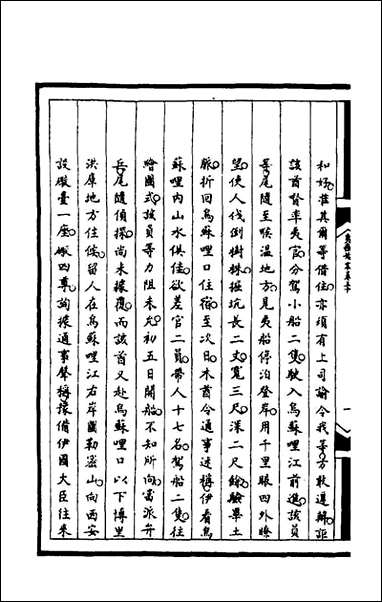 和好准其爾等借住亦須有上司諭令我等方敢遵辦詎
該酋聲率夷官分駕小船二隻駛入烏蘇哩江前進該員
等尾隨至喉溫地方見夷船停泊登岸用千里眼四外瞭
望使人伐倒樹株掘坑長二丈寬三尺深二尺餘驗畢土
脈折回烏蘇哩口住宿至次日木酋令通事述稱伊看烏
蘇哩內山水俱佳欲差官二員帶人十七名駕船二隻往
繪圖式該員等力阻未允初五日開船不知所向當派弁
兵尾隨偵探尚未據覆而該酋又赴烏蘇哩口以下博里
洪庫地方住俟留人在烏蘇哩江右岸圖勒密山向西安
設礮臺一座礮四尊詢據通事聲稱豫備伊國大臣往來